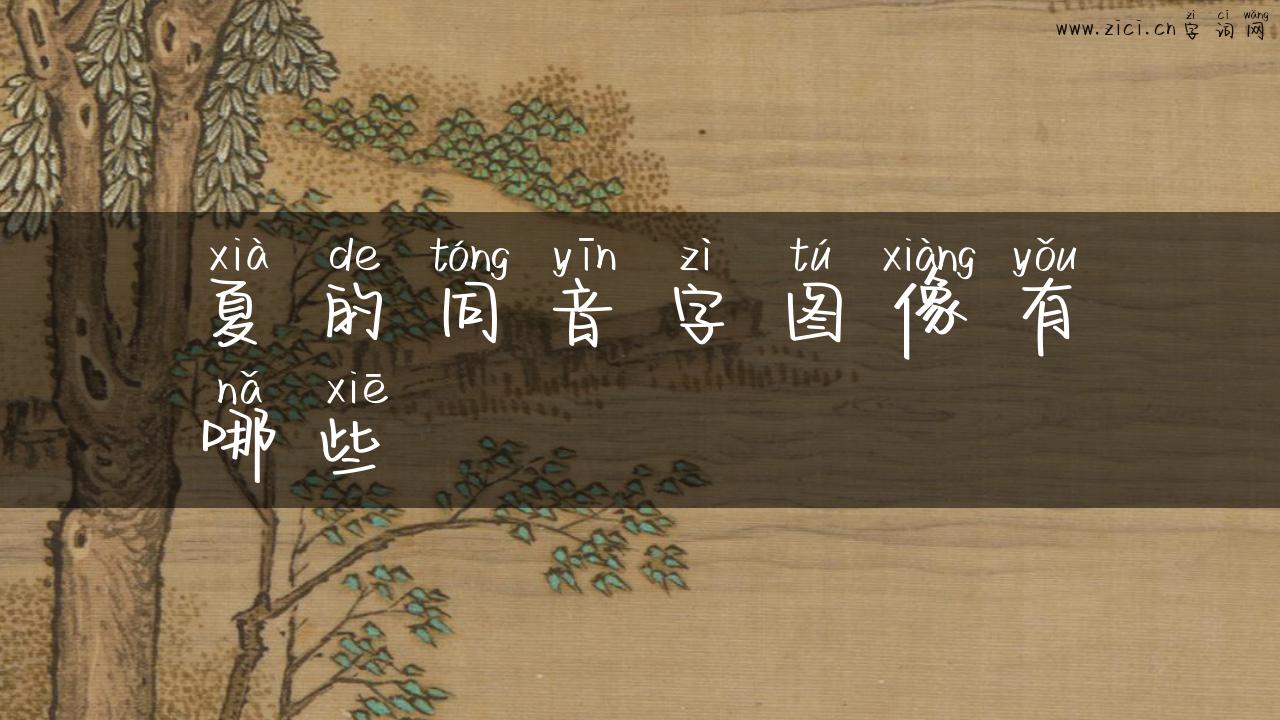 zì cí wǎng
www.zici.cn字词网
xià de tóng yīn zì tú xiàng yǒu
夏的同音字图像有
nǎ xiē
哪些